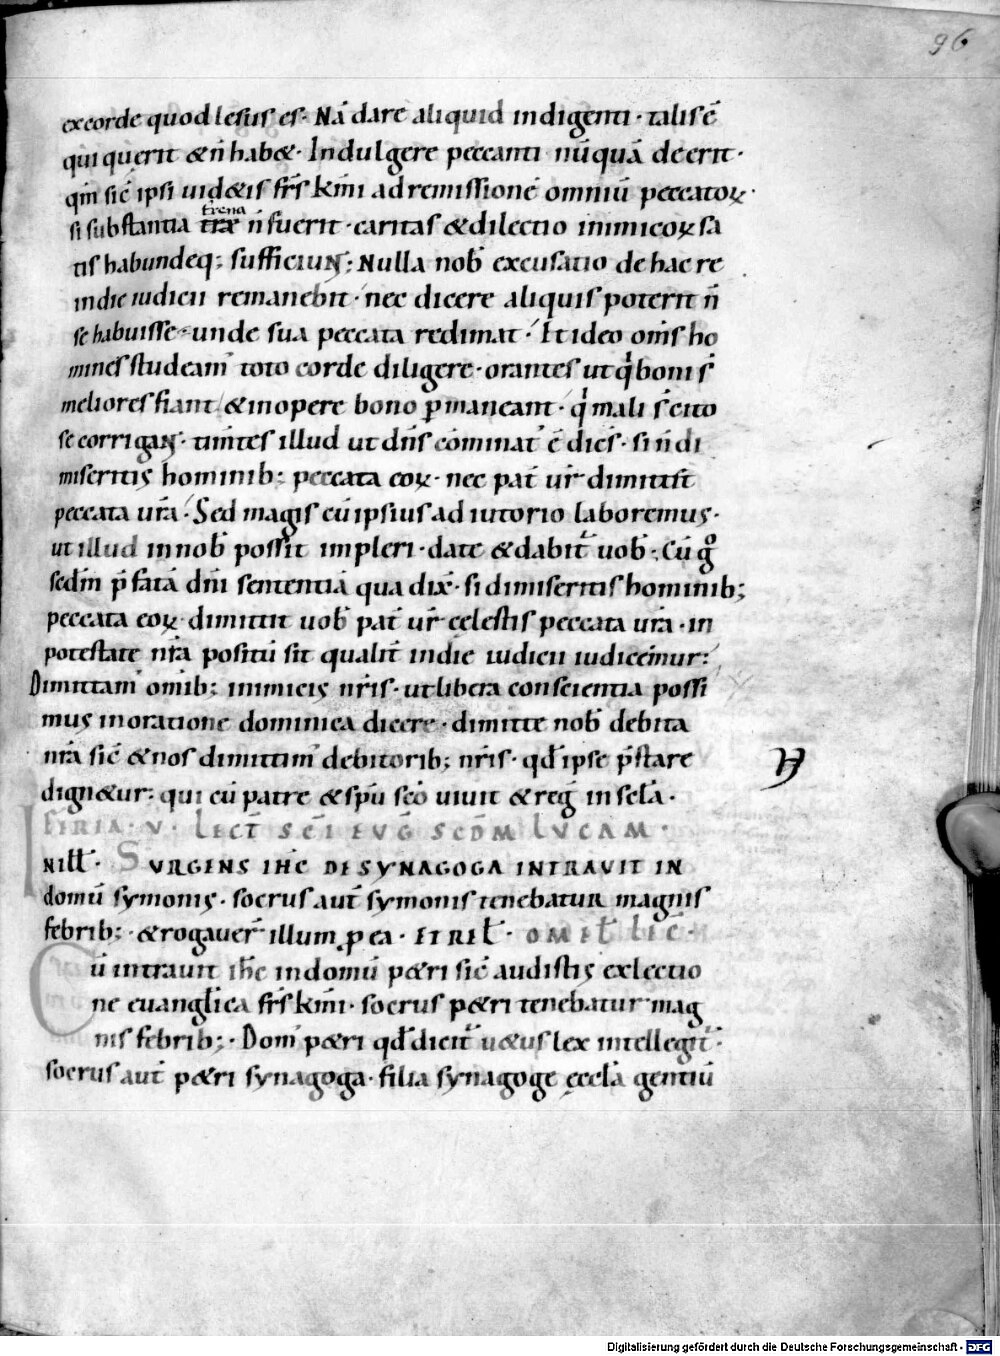 96
ex corde quod lesus es· Nā dare aliquid indigenti· talis ē
qui querit & n̄ hab&· Indulgere peccanti nūquā deerit·
qm̄ sic̄ ipsi uid&is fr̄s km̄i ad remissionē omniū peccatoꝝ·
si substantia trēna n̄ fuerit· caritas & dilectio inimicoꝝ sa
tis habundeq; sufficiunt; Nulla nob̄ excusatio de hac re
in die iudicii remanebit· nec dicere aliquis poterit n̄
se habuisse unde sua peccata redimat· Et ideo om̄s ho
mines studeam̄ toto corde diligere· orantes ut q̄ boni s̄
meliores fiant & in opere bono ꝑmaneant· q̄ mali s̄ cito
se corrigant· tim̄tes illud ut dn̄s cōminat᷒ ē dic̄s· si n̄ di
miseritis hominib; peccata eoꝝ· nec pat̄ ur̄ dimittet
peccata ur̄a· Sed magis cū ipsius adiutorio laboremus·
ut illud in nob̄ possit impleri· date & dabit᷒ uob̄· Cū g̊
sed̄m p̄fatā dn̄i sententiā qua dix̄· si dimiseritis hominib;
peccata eoꝝ· dimittit uob̄ pat̄ ur̄ cęlestis peccata ur̄a· in
potestate nr̄a positū sit qualit̄ in die iudicii iudicemur:
Dimittam᷒ omīb; inimicis nr̄is· ut libera conscientia possi
mus in oratione dominica dicere· dimitte nob̄ debita
nr̄a sic̄ & nos dimittim᷒ debitorib; nr̄is· qđ ipse p̄stare
dign&ur: qui cū patre & sp̄u sc̄o uiuit & reḡ in sc̄la·
FERIA· V· LECT̄ SC̄I EVḠ SCD̄M LVCAM·
IN ILL̄· SURGENS IHC̄ DE SYNAGOGA INTRAVIT IN
domū symonis· socrus aut̄ symonis tenebatur magnis
febrib; & rogauer̄ illum ꝑ ea· ET REL̄· OMEL̄ LEC̄·
Cū intrauit ih̄c in domū p&ri sic̄ audistis ex lectio
ne euangl̄ica fr̄s km̄i· socrus p&ri tenebatur mag
nis febrib;· Dom᷒ p&ri qđ dicit᷒ u&us lex intellegit᷒·
socrus aut̄ p&ri synagoga· filia synagoge eccl̄a gentiū
Digitalisierung gefördert durch die Deutsche Forschungsgemeinschaft - DFG